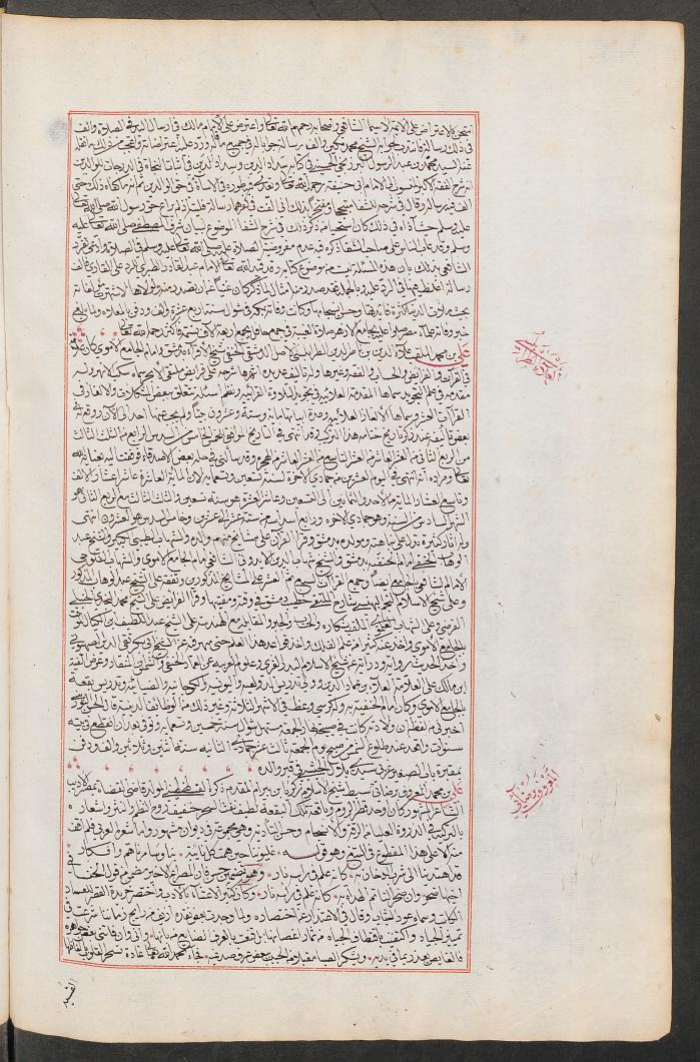 يتجرى للاعتراض على الائمة لاسيما الشافعي واصحابه رحمهم الله تعالى واعترض على الامام مالك في ارسال اليد في الصلاة والف
في ذلك رسالة فانتدب لجوابه الشيخ محمد مكين والف رسالة جوابا له في جميع ما قاله ورد عليه اعتراضاته واعجب من ذلك ما نقله
عنه السيد محمد بن عبد الرسول البرزنجي الحسيني في كتابه سداد الدين وسداد الدين في اثبات النجاة في الدرجات للوالدين
انه شرح الفقه الاكبر المنسوب الى الامام ابي حنيفة رحمه الله تعالى وتعدى فيه طوره في الاساءة في حق الوالدين ثم انه ما كفاه ذلك حتى
الف فيه رسالة وقال في شرحه للشفا متبجحا ومفتخرا بذلك اني الفت في كفرهما رسالة فليته اذ لم يراع حق رسول الله صلى الله تعالى
عليه وسلم حيث آذاه بذلك كان استحيا من ذكر ذلك في شرح الشفا الموضوع لبيان شرف المصطفى صلى الله تعالى عليه
وسلم وقد عاب الناس على صاحب الشفا ذكره فيه عدم مفروضية الصلاة عليه صلى الله تعالى عليه وسلم في الصلاة وادعى تفرد
الشافعي بذلك بان هذه المسئلة ليست من موضوع كتابه وقد قيض الله تعالى الامام عبد القادر الطبري للرد على القاري فالف
رسالة اغلظ فيها في الرد عليه وبالجملة فقد صدر منه امثال لما ذكر كان غنيا عن ان تصدر منه ولولاها لاشتهرت مؤلفاته
بحيث ملأت الدنيا لكثرة فائدتها وحسن انسجامها وكانت وفاته بمكة في شوال سنة اربع عشرة والف ودفن بالمعلاة ولما بلغ
خبر وفاته علماء مصر صلوا عليه بجامع الازهر صلاة الغيبة في جمع حافل يجمع اربعة آلاف نسمة فاكثر رحمه الله تعالى
علي بن محمد الملقب علاء الدين بن ناصر الدين الطرابلسي الاصل الدمشقي الحنفي شيخ الاقراء بدمشق وامام الجامع الاموي كان علامة
في القراآت والفرائض والحساب والفقه وغيرها وله تآليف عديدة اشهرها شرحه على فرائض ملتقى الابحر سماه سكب الانهر وله
مقدمة في علم التجويد سماها المقدمة العلائية في تجويد التلاوة القرآنية ونظم اسئلة تتعلق ببعض اشكالات والغاز في
القراآت العشر وسماها الالغاز العلائية وعدة ابياتها مائة وستة وعشرون بيتا ولم يجب عنها احد الى الآن ووقع له في
بعض تآليفه عند ذكر تاريخ ختامه هذا التركيب وقد انتهى في التاريخ الموافق لخمس الخامس من السدس الرابع من الثلث الثالث
من الربع الثاني من العشر العاشر من العشر التاسع من العشر العاشر من الهجرة وقد سالني في حله بعض الاصدقاء فوفقت اليه بعناية الله
تعالى ومراده انه انتهى في اليوم العشرين من جمادى الآخرة لسنة تسعين وتسعمائة لان المائة العاشرة عاشر اعشار الالف
وتاسع اعشار المائة من الاحدى والثمانين الى التسعين وعاشر العشرة هو سنة تسعين والثلث الثالث مع الربع الثاني هو
الشهر السادس من السنة وهو جمادى الآخرة ورابع اسداسه من ستة عشر الى عشرين وخامس السدس هو العشرون انتهى
وله آثار كثيرة تدل على نباهته ومولده بدمشق وقرأ القرآن على مشايخ منهم والده والشهاب الطيبي الكبير والشيخ عبد
الوهاب الحنفي امام الحنفية بدمشق والشيخ شهاب الدين الايدوني الشافعي امام الجامع الاموي والشهاب الفلوجي
الامام الشافعي بالجامع ايضا وجمع القرآن للسبع ثم للعشر على المشايخ المذكورين وتفقه على الشيخ عبد الوهاب المذكور
وعلى شيخ الاسلام النجم البهنسي شارح الملتقى خطيب دمشق في وقته ومفتيها وقرأ الفرائض على الشيخ محمد النجدي الحنبلي
الفرضي وعلى الشهاب العلموي تآليف شكاره والحساب والجبر والمقابلة مع الهندسة على الشيخ عبد اللطيف بن الكيال الموقت
بالجامع الاموي واخذ عنه كثيرا من علم الفلك واخذ قواعد هذا العلم حتى مهر فيه عن الشيخ ابي بكر تقي الدين الصهيوني
واخذ الحديث رواية ودراية عن شيخ الاسلام البدر الغزي وعلوم العربية عن العماد الحنفي والشمس بن المنقار وعرض الفية
ابن مالك على العلامة العلاء بن عماد الدين وولي تدريس المدرسة واليونسية والكوجانية والقصاعية وتدريس بقعة
بالجامع الاموي وكان امام الحنفية به وبكرسي وعظ في الاشهر الثلاثة وغير ذلك من الوظائف الدينية قال النجم
اخبرني من لفظه ان ولادته كانت في صبيحة نهار الجمعة مستهل شوال سنة خمسين وتسعمائة وتوفي بعد ان انقطع في بيته
سنوات واقعد عند طلوع الشمس من صبح يوم الجمعة ثالث عشر جمادى الثانية سنة اثنتين وثلاثين والف ودفن
بمقبرة باب الصغير غربي سيدي بلال الحبشي في قبر والده
علي بن محمد المعروف برضائي سبط شيخ الاسلام زكريا بن بيرام المقدم ذكره القسطنطيني المولد قاضي القضاة بمصر الاديب
الشاعر المشهور كان اوحد نظراء الروم وبلغاء تلك البقعة لطيف نفث السحر خفيف روح النظم والنثر واشعاره
بالتركية في الذروة العليا من الرقة والانسجام وحسن التأدية وهي مجموعة في ديوان مشهور واما شعره العربي فلم اقف
منه الا على هذا المقطوع في التبغ وهو قوله غليوننا حين همت كل نائبة بنا وساهرنا هم وافكار
قد اهتدينا الى شرب الدخان به كانه علم في رأسه نار وهو تضمين حسن فان المصراع الاخير عجز من قول الخنساء في
اخيها صخر وان صخرا لتأتم الهداة به كانه علم في رأسه نار وكان كثير الاعتناء بالادب واختصر خريدة القصر للعماد
الكاتب وسماه عود الشباب وقال في الاعتذار عن اختصاره ولما وجدت بعض نقده ازيف من زيج زماننا شرعت في
تمييز الجياد واكتفيت باقتطاف الجياه من ثمار اغصانها بل قنعت بالعرف الضايع من بانها واني وان فاتني بعض جواهره
فالغايص يعذر بما في يديه ويشكر الصبا مقدار ما يجلب بعض عرف صدغيه فجاء بحمد الله تعالى غادة تسحر القلوب بألفاظها

العلاء الطرابلسي
المعروف برضائي
القسية